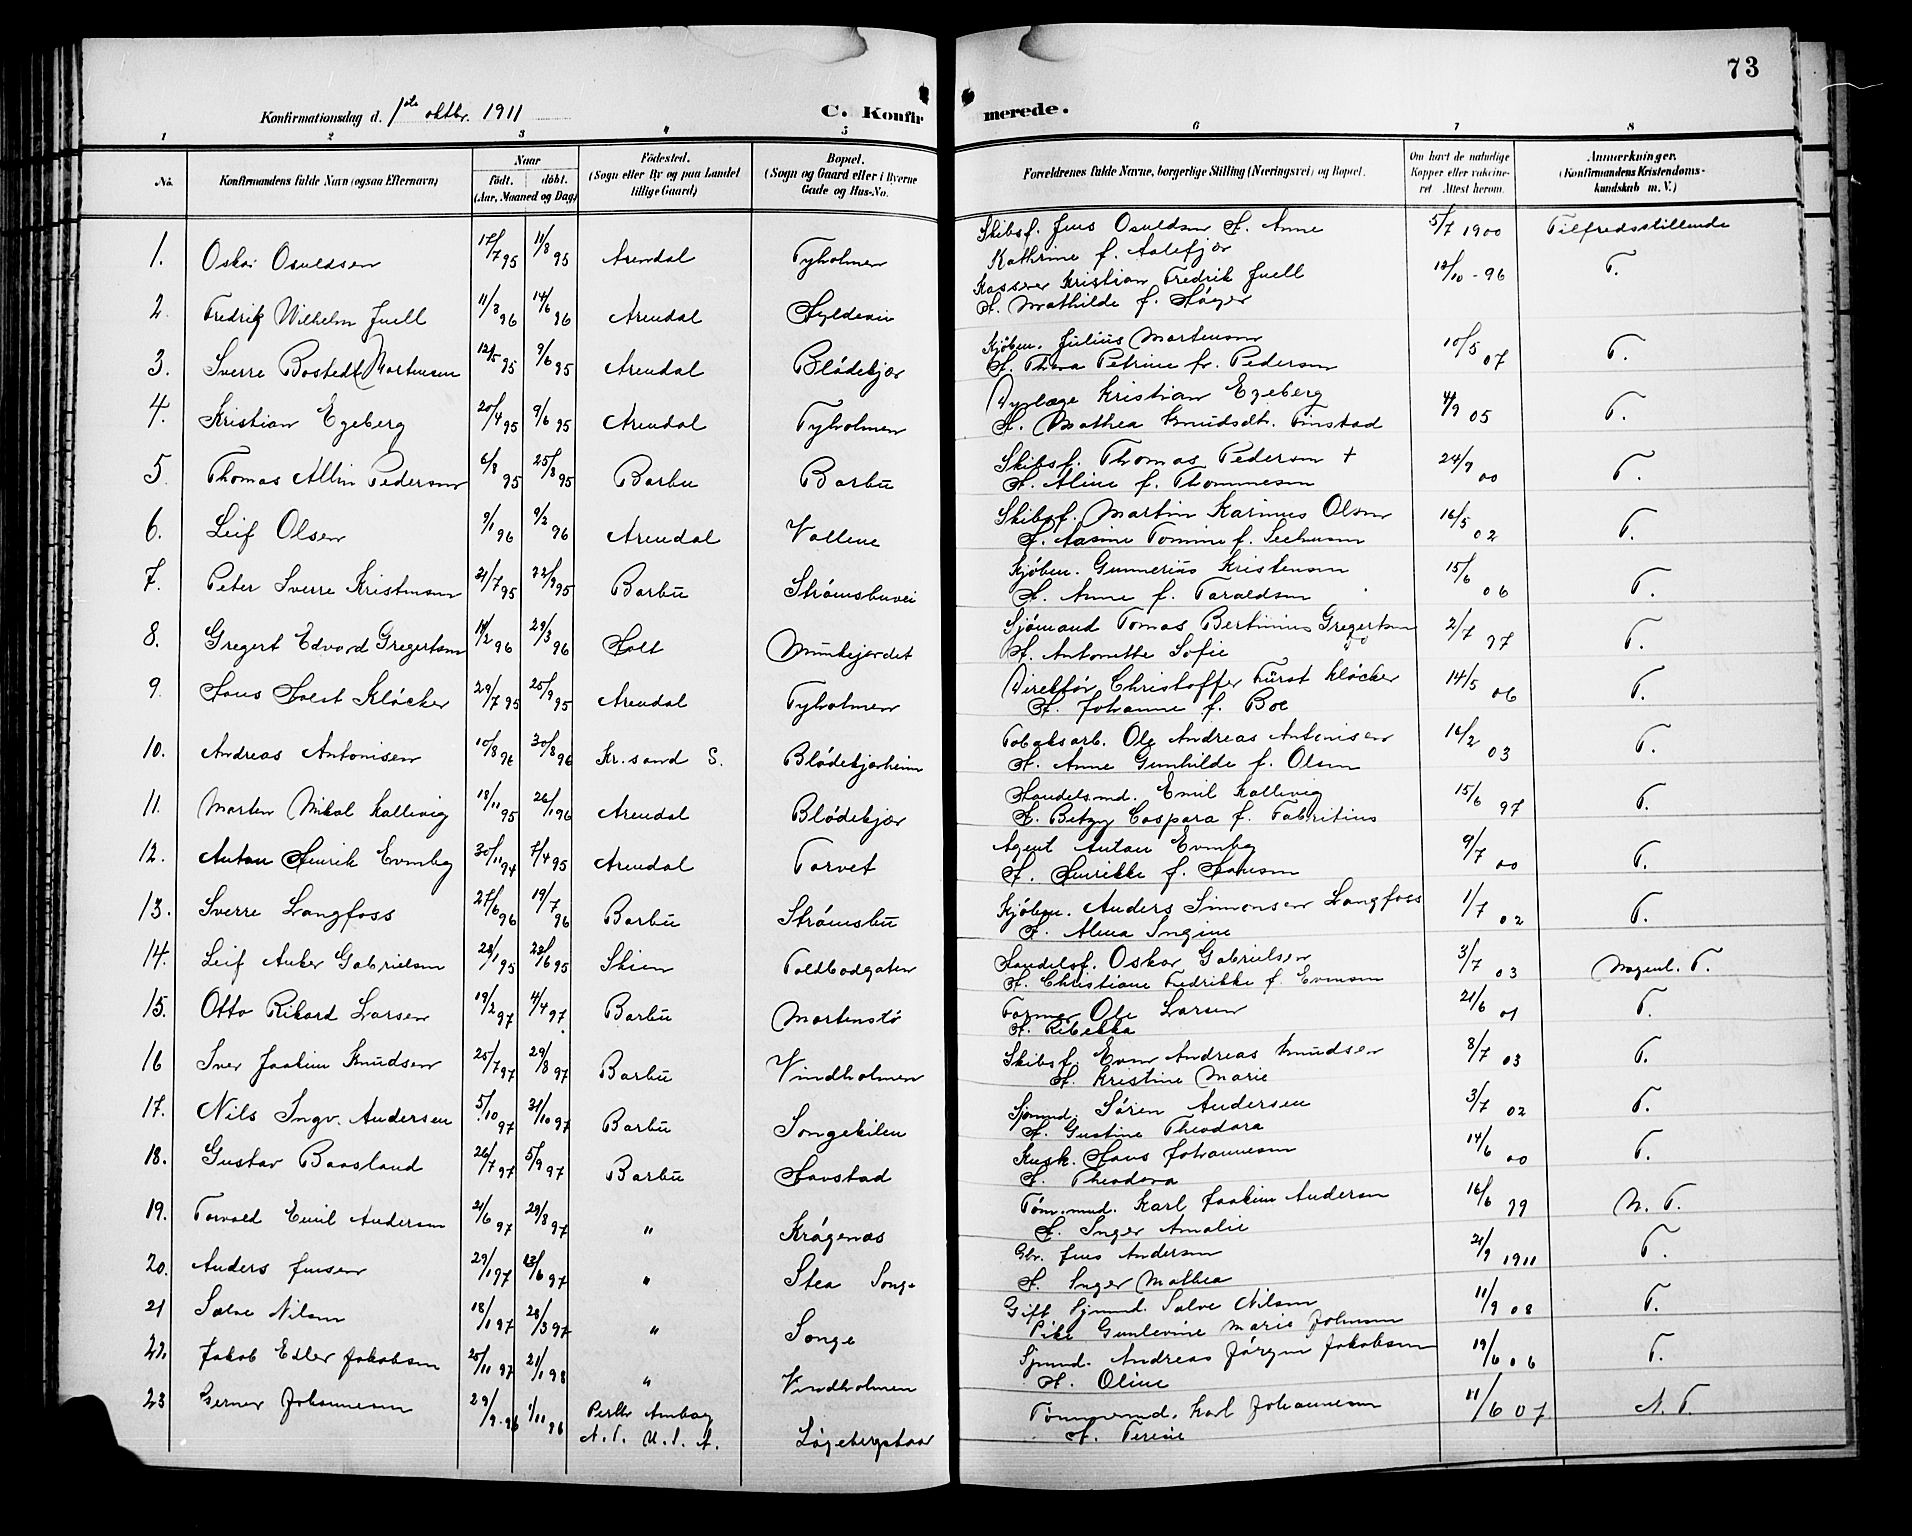 73
Konfirmationsdag d. 1ste oktbr. 1911 C. Konfirmerede.
1 2 3 4 5 6 7 8
No. Konfirmandens fulde Navn (ogsaa Efternavn) Naar født. døbt. (Aar, Maaned og Dag) Fødested. (Sogn eller By og paa Landet tillige Gaard) Bopæl. (Sogn og Gaard eller i Byerne Gade og Hus-No. Forældrenes fulde Navne, borgerlige Stilling (Næringsvei) og Bopæl. Om havt de naturlige Kopper eller vaccineret Attest herom. Anmærkninger. (Konfirmandens Kristendomskundskab m. V.)
1. Oskar Osuldsen 17/7 95 11/8 95 Arendal Tyholmen Skibsf. Jens Osuldsen H. Anne 5/7 1900 Tilfredsstillende
Kathrine f. Aalefjær
2. Fredrik Wilhelm Juell 11/3 96 14/6 96 Arendal Kasserer Kristian Fredrik Juell 12/10 - 96 T.
H. Mathilde f.
3. Sverre Bostedt Mortensen 12/5 95 9/6 95 Arendal Blødekjær Kjøbm. Julius Mortensen 10/5 07 T.
H. Thora Petrine f. Pedersen
4. Kristian Egeberg 20/4 95 9/6 95 Arendal Tyholmen Dyrlæge Kristian Egeberg 4/9 05 T.
H. Mathea Knudsdt. Finstad
5. Thomas Allin Pedersen 6/8 95 25/8 95 Barbu Barbu Skibsf. Thomas Pedersen + 24/7 00 T.
H. Aline f. Thommesen
6. Leif Olsen 9/1 96 9/2 96 Arendal Vollene Skibsf. Martin Karinus Olsen 16/5 02 T.
H. Aasine Tomine f.
7. Peter Sverre Kristensen 21/7 95 22/9 95 Barbu Strømsbuvei Kjøbm. Gunnerius Kristensen 15/6 06 T.
H. Anne f. Taraldsen
8. Gregert Edvard Gregertsen 14/2 96 29/3 96 Holt Munkejordet Sjømand Tomas Bertinius Gregertsen 2/7 97 T.
H. Antonette Sofie
9. Hans Holst Kløcker 29/7 95 25/9 95 Arendal Tyholmen Direktør Christoffer Fürst Kløcker 14/5 06 T.
H. Johanne f. Boe
10. Andreas Antonisen 10/8 96 30/8 96 Kr.sand S. Blødekjærheien Tobaksarb. Ole Andreas Antonisen 16/2 03 T.
H. Anne Gunhilde f. Olsen
11. Morten Mikal Kallevig 18/11 95 26/1 96 Arendal Blødekjær Handelsmd. Emil Kallevig 15/6 97 T.
H. Betzy Caspara f. Fabritius
12. Anton Henrik Evenbg 30/11 94 7/4 95 Arendal Torvet Agent Anton Evenbg 9/7 00 T.
H. Henrikke f. Hansen
13. Sverre Langfoss 27/6 96 19/7 96 Barbu Strømsbu Kjøbm. Anders Simonsen Langfoss 1/7 02 T.
H. Alma Ingine
14. Leif Anker Gabrielsen 28/1 95 23/6 95 Skien Toldbodgaten Handelsf. Oskar Gabrielsen 3/7 03 Megenl. T.
H. Christiane Fredrikke f. Evensen
15. Otto Rikard Larsen 19/2 97 4/4 97 Barbu Mortenstø Former Ole Larsen 21/6 01 T.
H. Rebekka
16 Iver Joakim Knudsen 25/7 97 29/8 97 Barbu Vindholmen Skibsf. Even Andreas Knudsen 8/7 03 T.
H. Kristine Marie
17. Nils Ingv. Andersen 5/10 97 31/10 97 Barbu Songekilen Sjømd. Søren Andersen 3/7 02 T.
H. Gustine Theodora
18. Gustav Baasland 26/7 97 5/9 97 Barbu Havstad Kusk. Hans Johannesen 14/6 00 T.
H. Theodora
19. Torvald Emil Andersen 21/6 97 29/8 97 " Krøgenes Tøm.md. Karl Joakim Andersen 16/6 99 M. T.
H. Inger Amalie
20. Anders Jensen 29/1 97 13/6 97 " Stea Songe Gbr. Jens Andersen 21/9 1911 T.
H. Inger Mathea
21 Salve Nilsen 18/1 97 28/3 97 " Songe Gift Sjømd. Salve Nilsen 11/9 08 T.
Pike Gunlevine Marie Johnsen
22. Jakob Edler Jakobsen 25/11 97 21/1 98 " Vindholmen Sjømd. Andreas Jørgen Jakobsen 19/6 06 T.
H. Oline
23 Gerner Johannesen 29/9 - 96 1/11 96 Perth Amboy Tømmermd. Karl Johannesen 11/6 07 N. T.
N. T. U. S. A. H. Terese